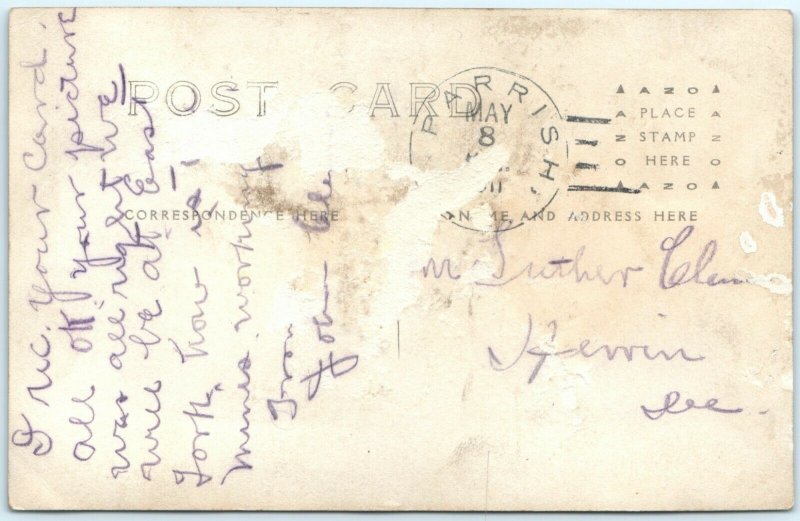 POST CARD
PARRISH,
MAY
8
AZO
PLACE
STAMP
HERE
AZO
CORRESPONDENCE HERE
NAME AND ADDRESS HERE
I rec. your card.
all ok your picture
was all right we
will be at East
Fork, how is
mines working
from
John
M Luther Clem
Herrin
Ill.